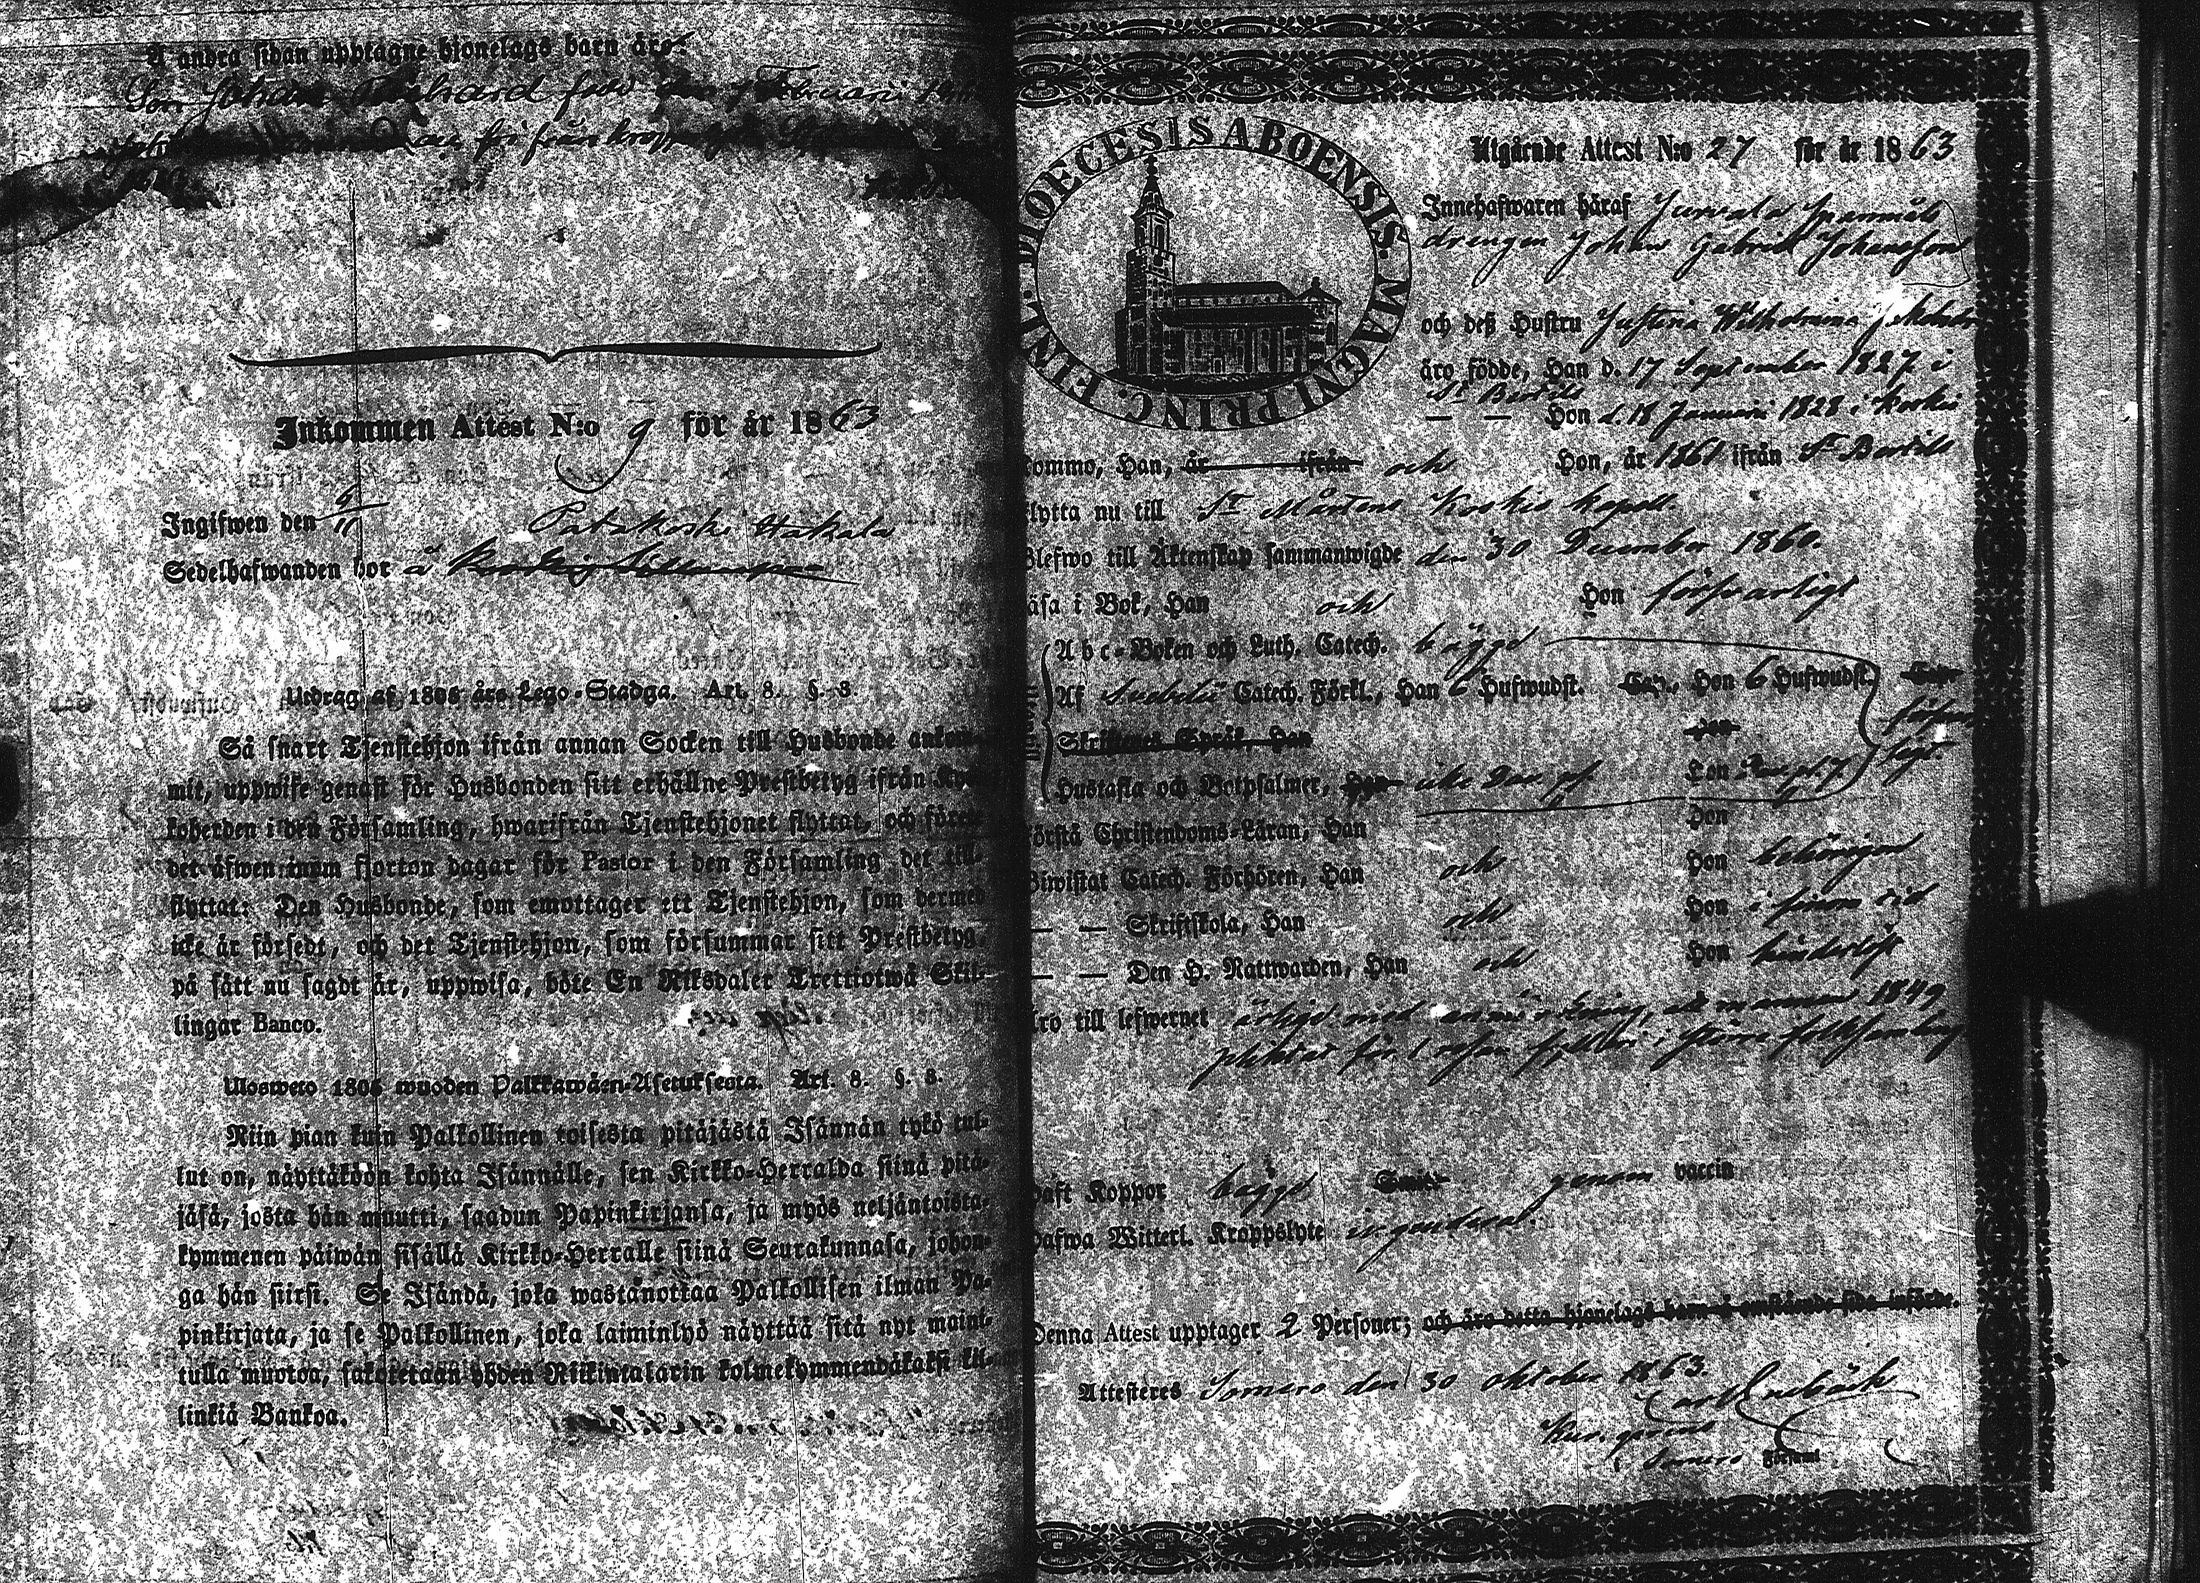 Å andra sidan upptagne hjonelags barn äro:
Son Johan född den 1 Februari
fri från
Inkommen Attest N:o 9 för år 1863
Ingifwen den 6/11
Patakoski Hakala
Sedelhafwanden bor å
Utdrag af 1805 års Lego-Stadga. Art. 8. §. 3.
Så snart Tjenstehjon ifrån annan Socken till Husbonde ankom-
mit, uppwise genast för Husbonden sitt erhållne Prestbetyg ifrån Kyr-
koherden i den Församling, hwarifrån Tjenstehjonet flyttat, och förete
det äfwen inom fjorton dagar för Pastor i den Församling det till-
flyttat: Den Husbonde, som emottager ett Tjenstehjon, som dermed
icke är försedt, och det Tjenstehjon, som försummar sitt Prestbetyg,
på sätt nu sagdt är, uppwisa, böte En Riksdaler Trettiotwå Skil-
lingar Banco.
Ulosweto 1805 wuoden Palkkawäen-Asetuksesta. Art. 8. §. 3.
Niin pian kuin Palkollinen toisesta pitäjästä Isännän tykö tul-
lut on, näyttäköön kohta Isännälle, sen Kirkko-Herralda siinä pitä-
jäsä, josta hän muutti, saadun Papinkirjansa, ja myös neljäntoista-
kymmenen päiwän sisällä Kirkko-Herralle siinä Seurakunnasa, johon-
ga hän siirsi. Se Isändä, joka wastanottaa Palkollisen ilman Pa-
pinkirjata, ja se Palkollinen, joka laiminlyö näyttää sitä nyt maini-
tulla muotoa, sakotetaan yhden Riikintalarin kolmekymmendäkaksi kil-
linkiä Bankoa.
FINL. DIOECESIS ABOENSIS. MAGNI PRINC.
Utgående Attest N:o 27 för år 1863
Innehafwaren häraf Jurvala
drengen Johan Gabriel Johansson
och deß Hustru Justina Wilhelmina
äro födde, Han d. 17 September 1827 i
St Bertils
— — Hon d. 18 Januari 1828 i Koskis
kommo, Han, år ifrån och Hon, år 1861 ifrån St Bertils
flytta nu till St Mårtens Koskis kapell.
Blefwo till Äktenskap sammanwigde den 30 December 1860.
läsa i Bok, Han och Hon försvarligt
Abc-Boken och Luth. Catech. bägge
Af Svebelii Catech. Förkl., Han 6 Hufwudst. Cap., Hon 6 Hufwudst. Cap.
Skriftenes Språk, Han Hon
Hustafla och Botpsalmer, Han icke Dav. ps. Hon Dav. ps.
förstå Christendoms-Läran, Han Hon
Biwistat Catech. Förhören, Han och Hon behörigen
— — Skriftskola, Han och Hon i sinom tid
— — Den H. Nattwarden, Han och Hon
äro till lefwernet ärlige med anmärkning, att mannen 1849
pliktat för 1 resan fylleri i större folksamling
haft Koppor bägge genom vaccin
hafwa Witterl. Kroppslyte ingendera.
Denna Attest upptager 2 Personer; och äro detta hjonelags barn å omstående sida införde.
Attesteres Somero den 30 oktober 1863.
Carl
Somero Församl